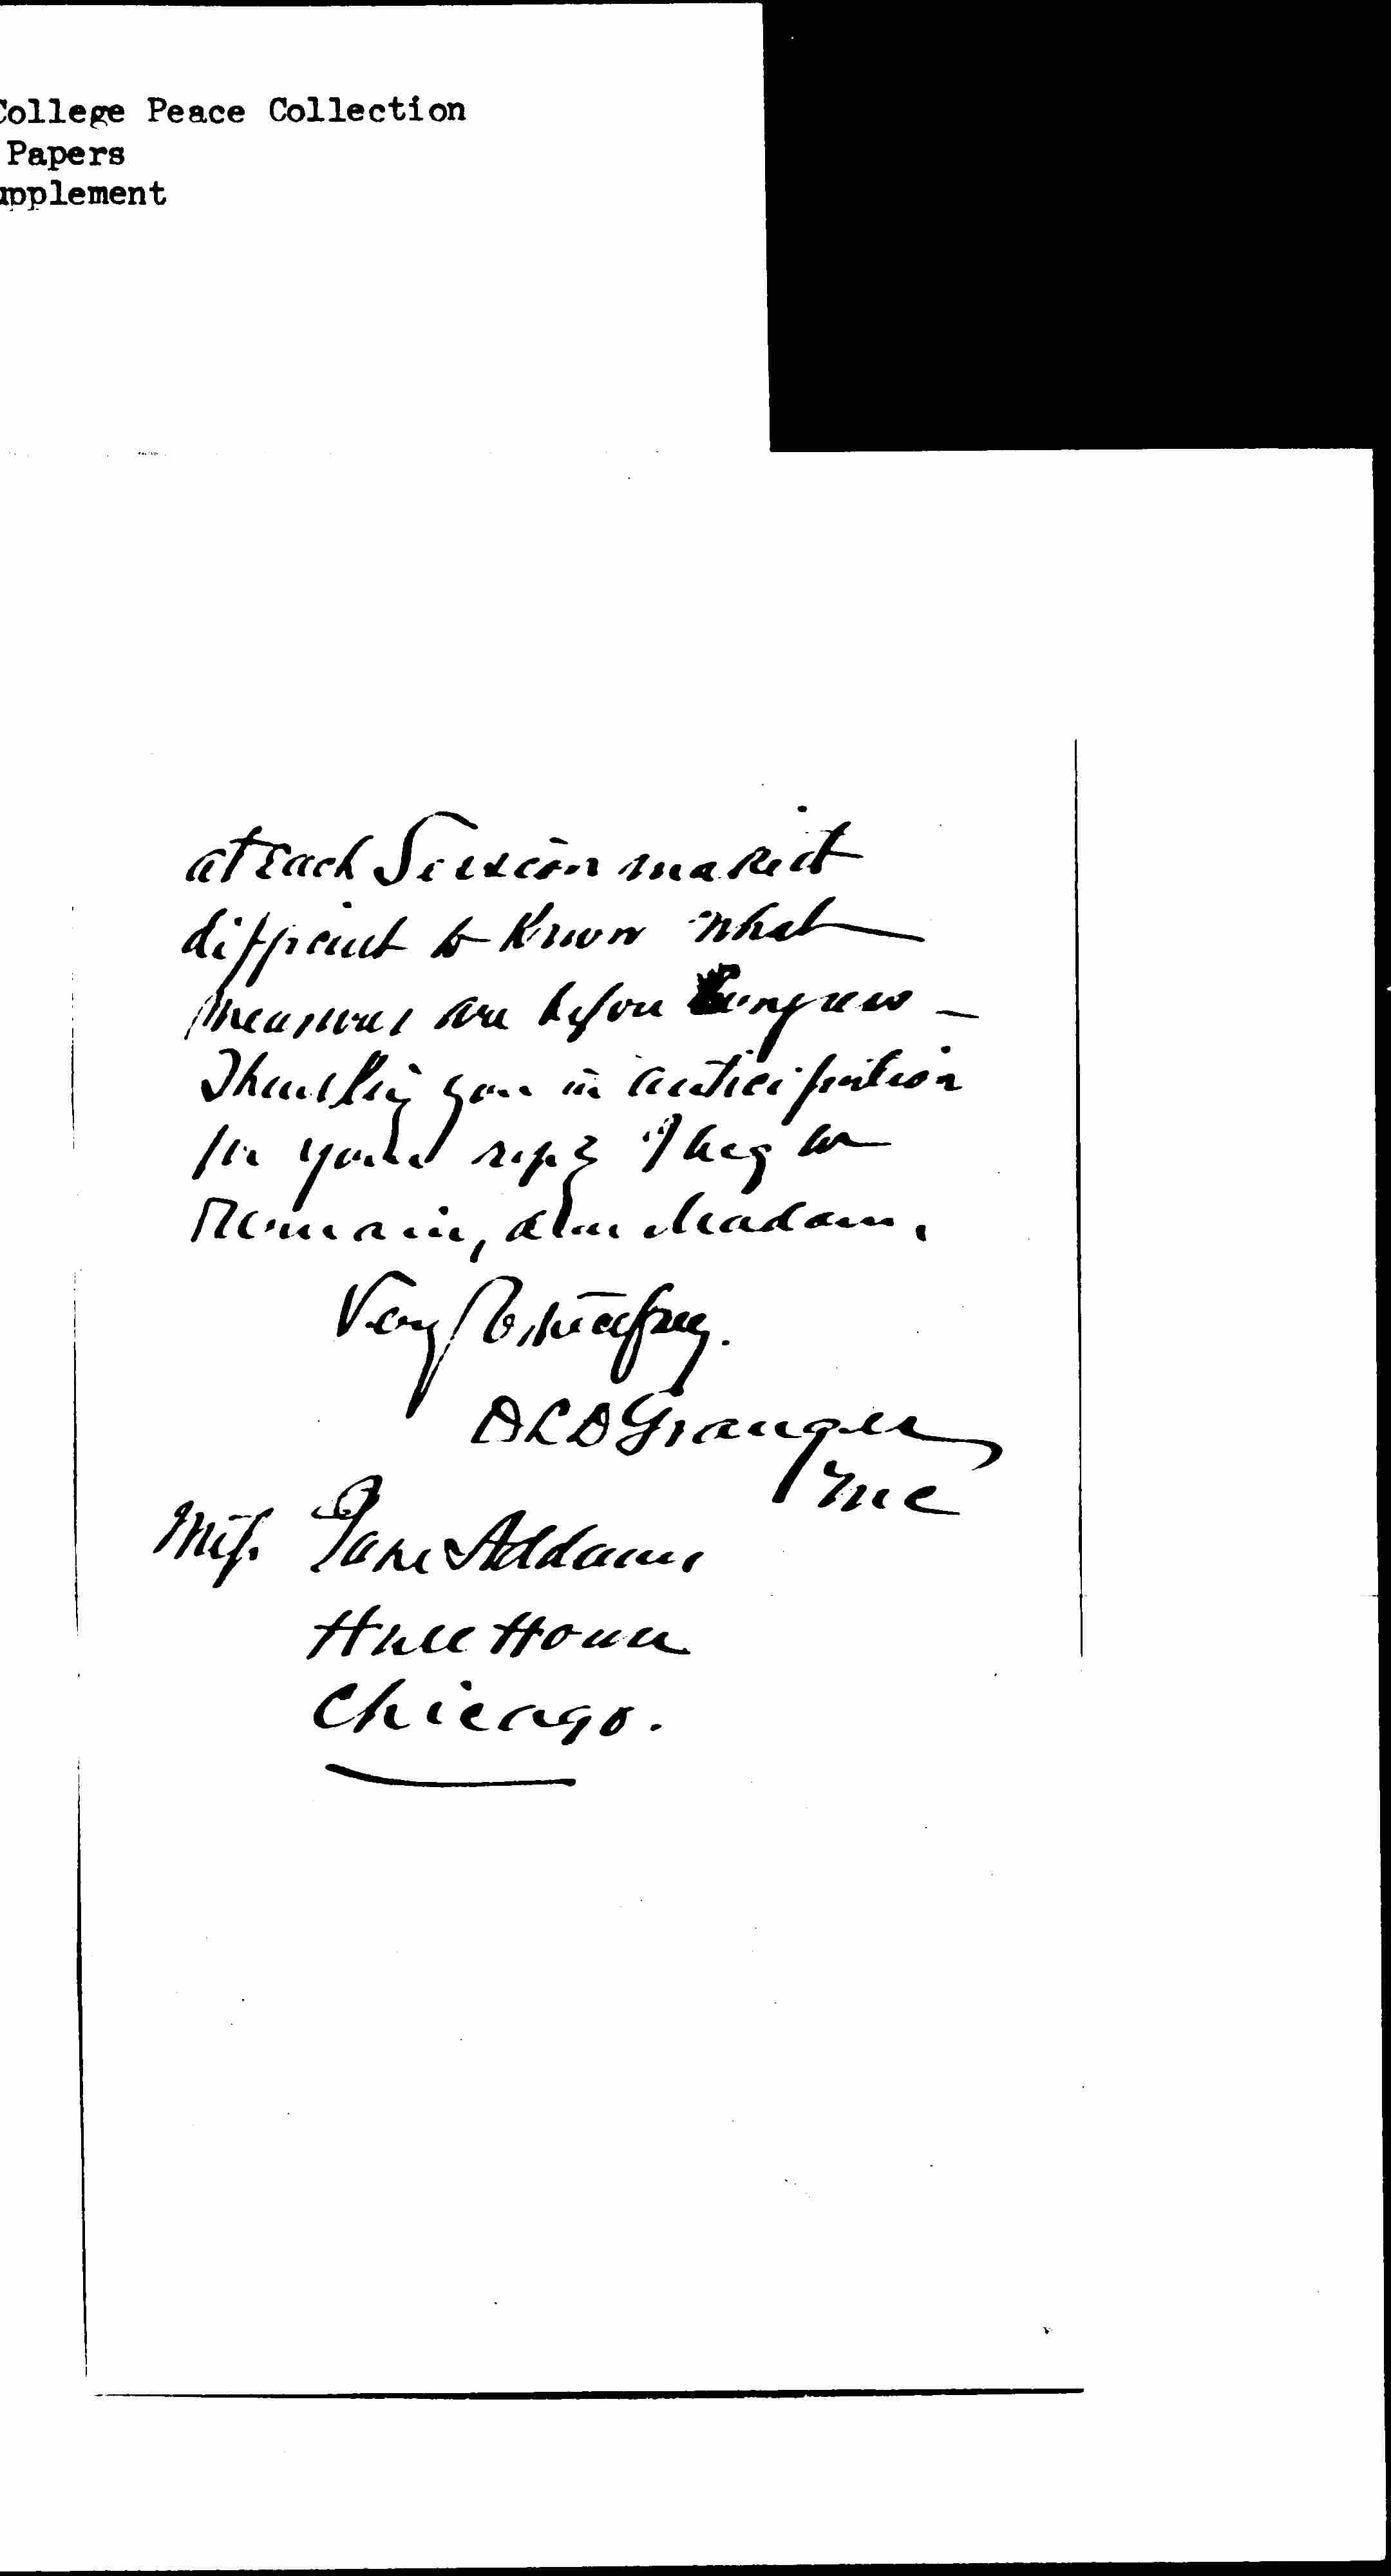 College Peace Collection
Papers
upplement
at each Session makes it
difficult to know what
measures are before Congress –
Thanking you in anticipation
for your reply I beg to
Remain, dear Madam,
Very Respectfully.
Granger
Miss. Jane Addams
Hull House
Chicago.